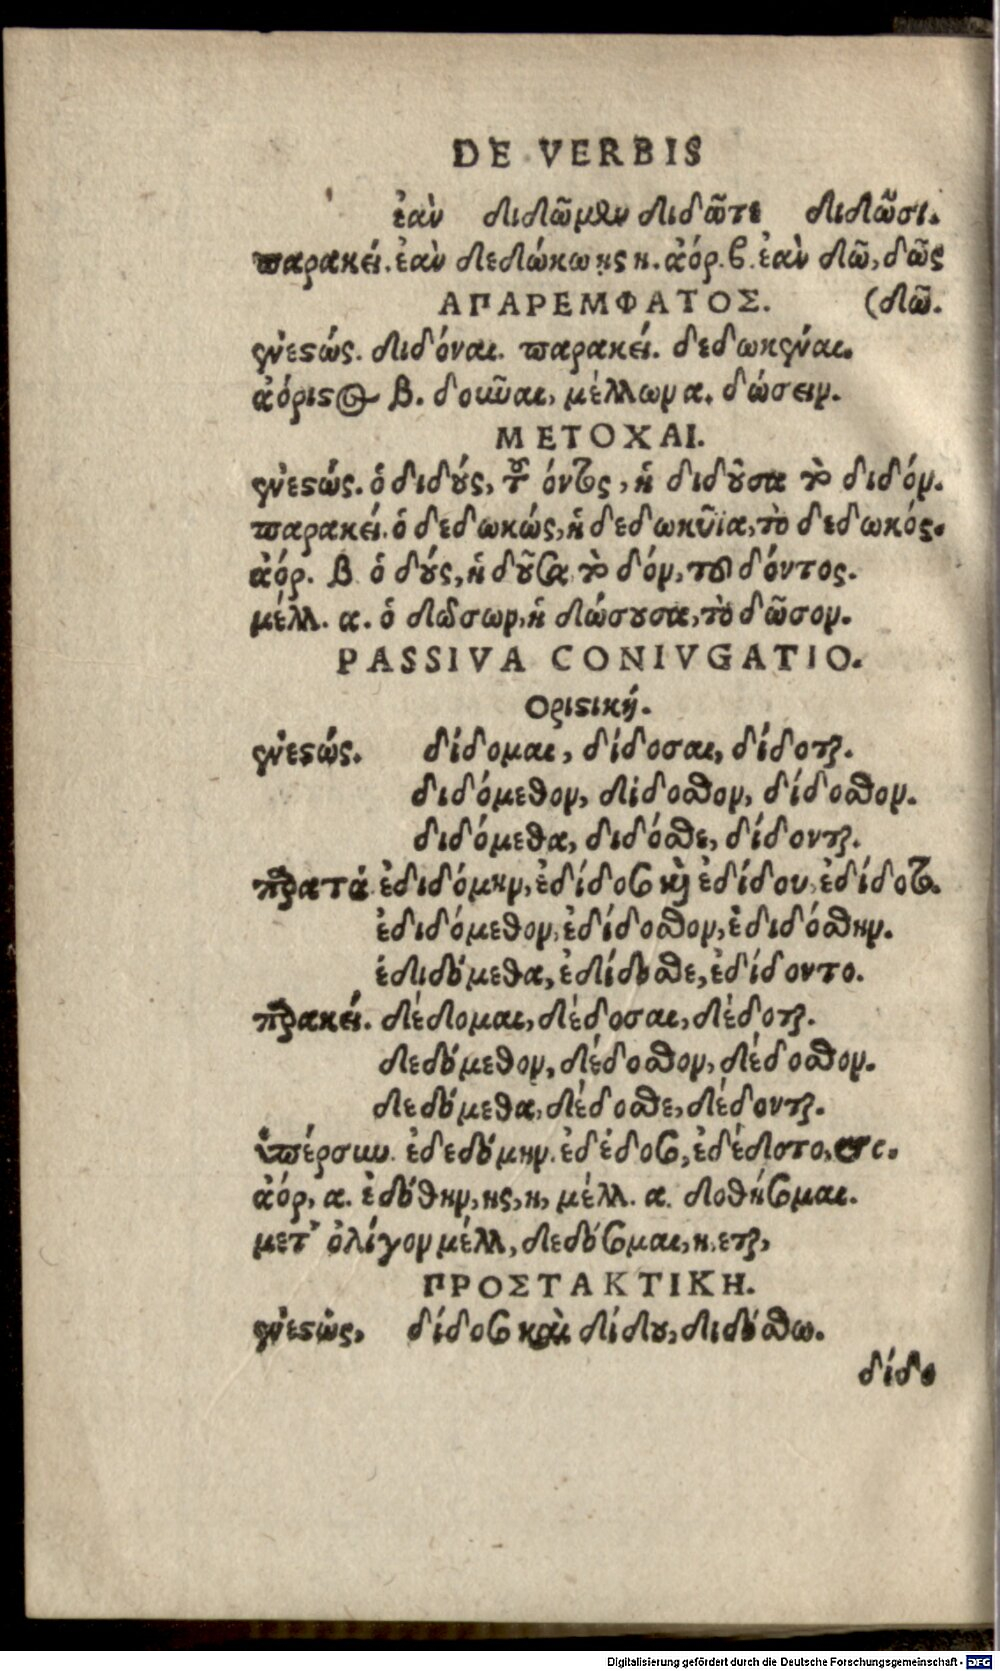 DE VERBIS
ἐὰν διδῶμεν διδῶτε διδῶσι.
παρακεί. ἐὰν δεδώκω ῃς ῃ. ἀόρ. β. ἐὰν δῶ, δῷς
ΑΠΑΡΕΜΦΑΤΟΣ. (δῷ.
ἐνεστώς. διδόναι. παρακεί. δεδωκέναι.
ἀόριστος β. δοῦναι, μέλλων α. δώσειν.
ΜΕΤΟΧΑΙ.
ἐνεστώς. ὁ διδούς, τοῦ όντος, ἡ διδοῦσα τὸ διδόν.
παρακεί. ὁ δεδωκώς, ἡ δεδωκῦια, τὸ δεδωκός.
ἀόρ. β ὁ δούς, ἡ δοῦσα, τὸ δόν, τοῦ δόντος.
μέλλ. α. ὁ δώσων, ἡ δώσουσα, τὸ δῶσον.
PASSIVA CONIVGATIO.
Οριστική.
ἐνεστώς. δίδομαι, δίδοσαι, δίδοται.
διδόμεθον, δίδοσθον, δίδοσθον.
διδόμεθα, διδόσθε, δίδονται.
παρατά ἐδιδόμην, ἐδίδοσο καὶ ἐδίδου, ἐδίδοτο.
ἐδιδόμεθον, ἐδίδοσθον, ἐδιδόσθην.
ἐδιδόμεθα, ἐδίδοσθε, ἐδίδοντο.
παρακεί. δέδομαι, δέδοσαι, δέδοται.
δεδόμεθον, δέδοσθον, δέδοσθον.
δεδόμεθα, δέδοσθε, δέδονται.
ὑπέρσυν. ἐδεδόμην. ἐδέδοσο, ἐδέδοτο, &c.
ἀόρ, α. ἐδόθην, ης, η, μέλλ. α. δοθήσομαι.
μετ' ὀλίγον μέλλ, δεδόσομαι, η. εται,
ΠΡΟΣΤΑΚΤΙΚΗ.
ἐνεστώς, δίδοσο καὶ δίδου, διδόσθω.
δίδο